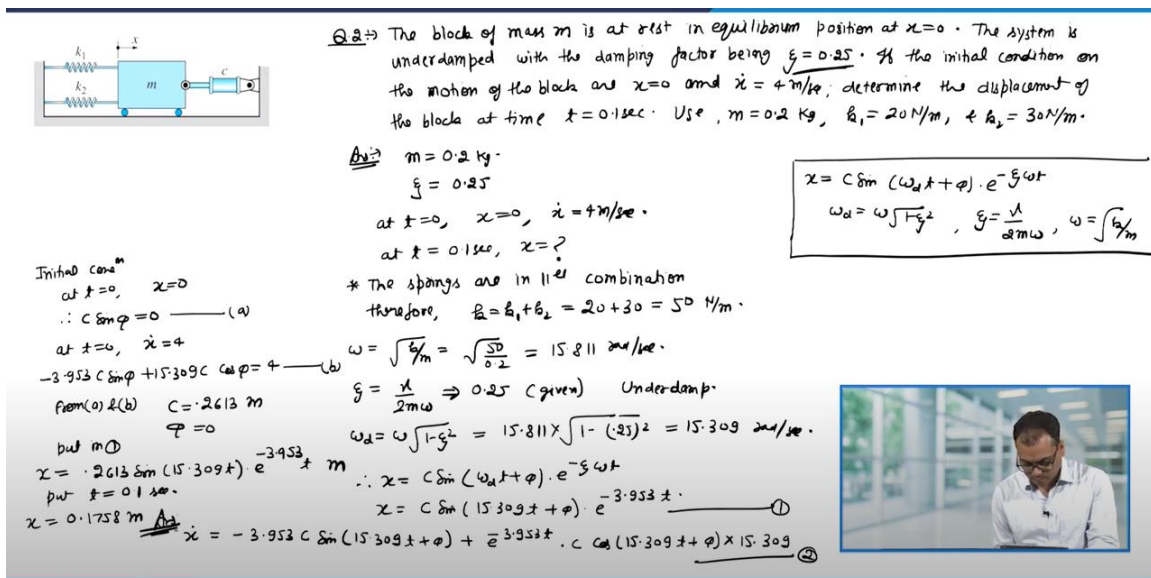 x
k₁
k₂
m
c
Q.2⇒ The block of mass m is at rest in equilibrium position at x=0. The system is
underdamped with the damping factor being ξ = 0.25. If the initial condition on
the motion of the block are x=0 and ẋ = 4 m/se, determine the displacement of
the block at time t=0.1sec. Use, m=0.2 kg, k₁=20N/m, & k₂=30N/m.
Ans:⇒ m=0.2 kg.
ξ = 0.25
at t=0, x=0, ẋ=4m/se.
at t=0.1sec, x=?
* The springs are in 11el combination
therefore, k=k₁+k₂ = 20+30 = 50 N/m.
ω = √k/m = √50/0.2 = 15.811 rad/se.
ξ = r/2mω ⇒ 0.25 (given) Underdamp.
ω_d = ω√1-ξ² = 15.811×√1-(.25)² = 15.309 rad/se.
∴ x= C Sin (ω_d t+φ).e^-ξωt
x= C Sin (15.309t+φ).e^-3.953t. ①
ẋ = -3.953 C Sin(15.309t+φ) + e^-3.953t . C Cos(15.309t+φ)×15.309 ②
x= C Sin (ω_d t+φ).e^-ξωt
ω_d = ω√1-ξ² , ξ= r/2mω , ω=√k/m
Initial conⁿ
at t=0, x=0
∴ C Sin φ=0 (a)
at t=0, ẋ=4
-3.953 C Sinφ +15.309C Cos φ= 4 (b)
from(a) &(b) C=.2613 m
φ =0
put in ①
x= .2613 Sin(15.309t).e^-3.953t m
put t=01 sec.
x=0.1758 m Ans